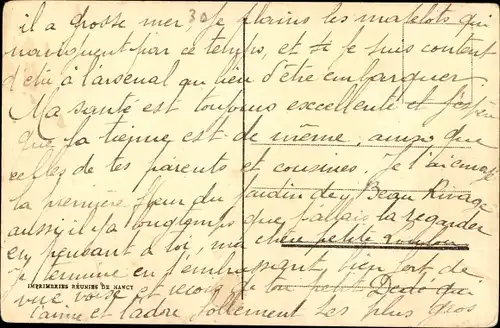 il a grosse mer, je plains les matelots qui
naviguent par ce temps, et je suis content
d'être à l'arsenal au lieu d'être embarquer
Ma santé est toujours excellente et j'espère
que la tienne est de même, ainsi que
celles de tes parents et cousines. Je t'ai
la première fleur du jardin de Beau Rivage
aussi il y a longtemps que j'allais la regarder
en pensant à toi, ma chère petite
Je termine en t'embrassant bien fort de
vive voix et reçois de ton petit Dédé qui
t'aime et t'adore follement ses plus gros
IMPRIMERIES RÉUNIES DE NANCY
30